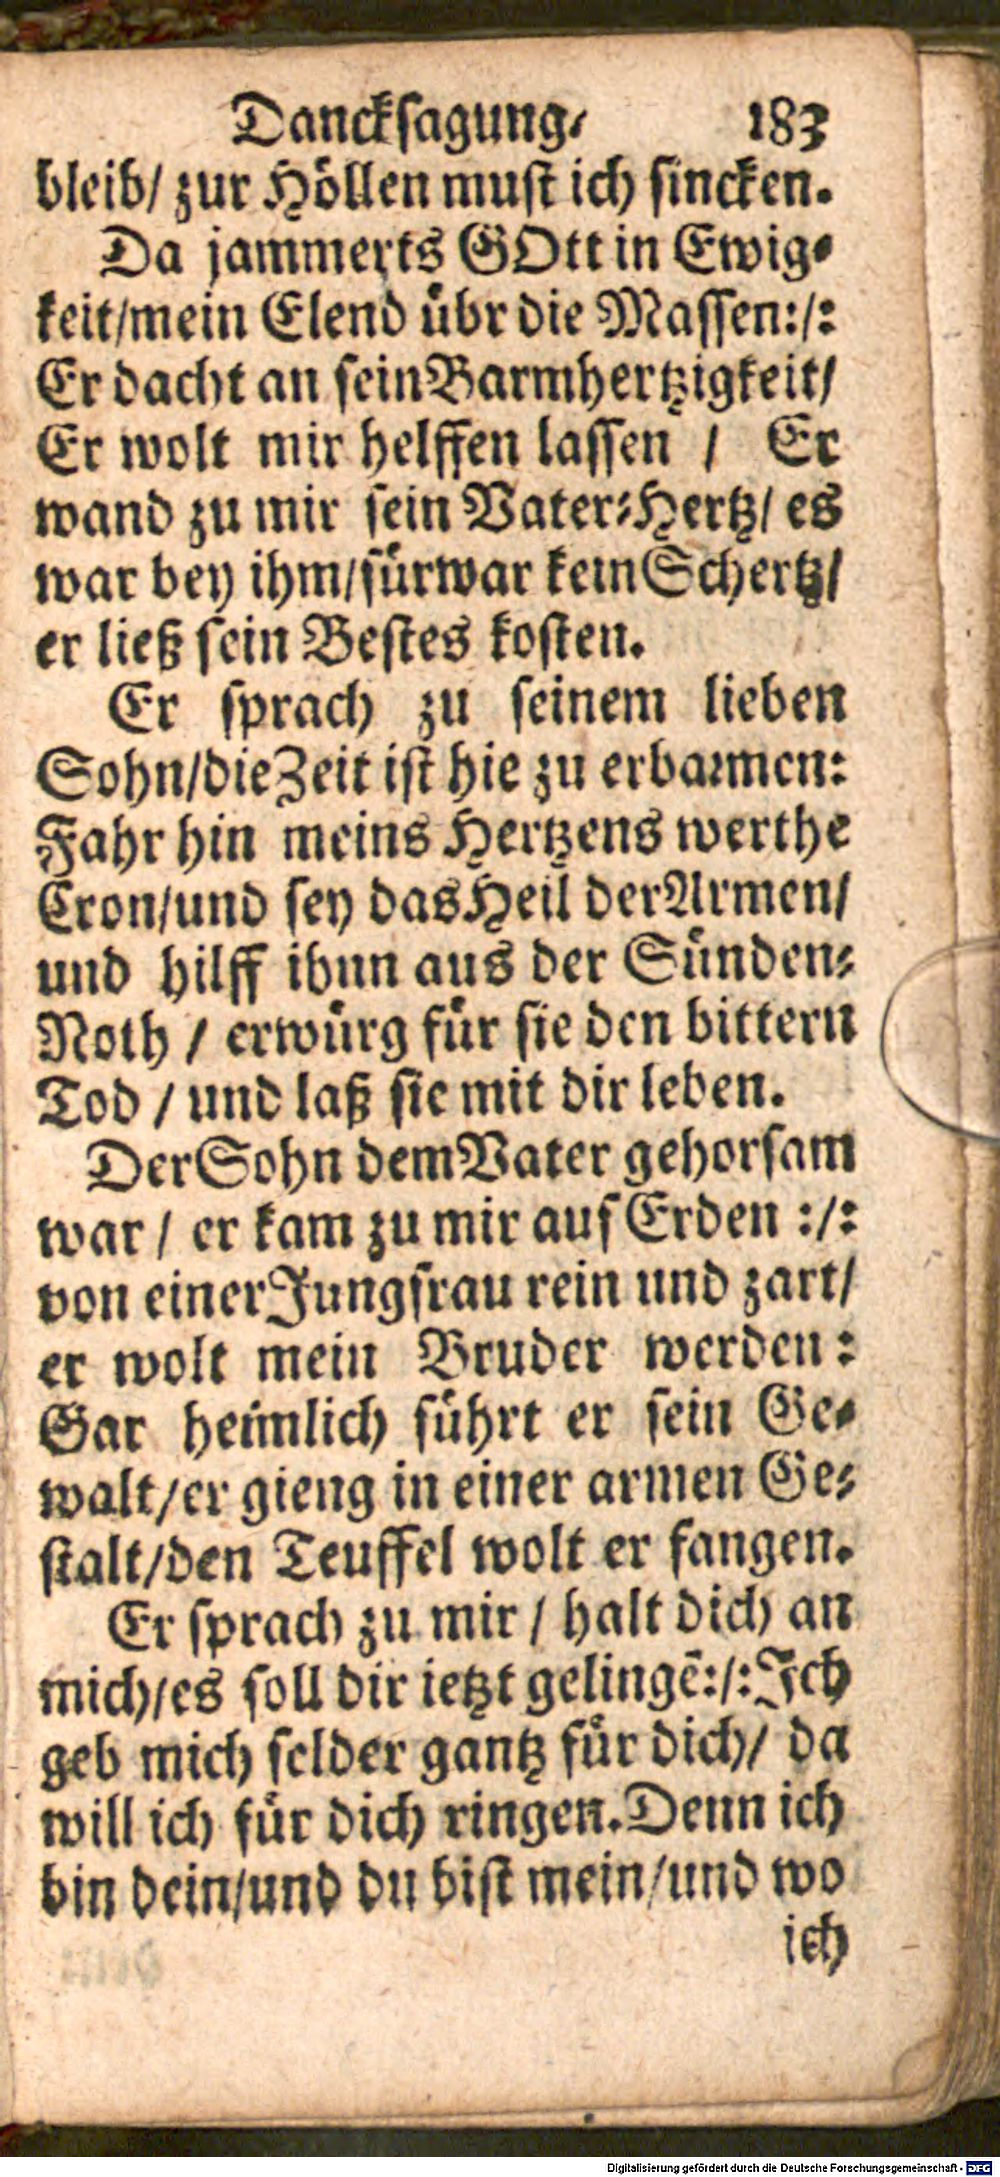 Danckſagung/ 183
bleib/ zur Höllen muſt ich ſincken.
Da jammerts GOtt in Ewig-
keit/mein Elend übr die Maſſen:/:
Er dacht an ſein Barmhertzigkeit/
Er wolt mir helffen laſſen / Er
wand zu mir ſein Vater-Hertz/ es
war bey ihm/fürwar kein Schertz/
er ließ ſein Beſtes koſten.
Er ſprach zu ſeinem lieben
Sohn/die Zeit iſt hie zu erbarmen:
Fahr hin meins Hertzens werthe
Cron/und ſey das Heil der Armen/
und hilff ihnn aus der Sünden-
Noth / erwürg für ſie den bittern
Tod / und laß ſie mit dir leben.
Der Sohn dem Vater gehorſam
war / er kam zu mir auf Erden :/:
von einer Jungfrau rein und zart/
er wolt mein Bruder werden:
Gar heimlich führt er ſein Ge-
walt/er gieng in einer armen Ge-
ſtalt/den Teuffel wolt er fangen.
Er ſprach zu mir / halt dich an
mich/es ſoll dir ietzt gelingē:/: Ich
geb mich ſelber gantz für dich/ da
will ich für dich ringen. Denn ich
bin dein/und du biſt mein/und wo
ich
Digitalisierung gefördert durch die Deutsche Forschungsgemeinschaft - DFG